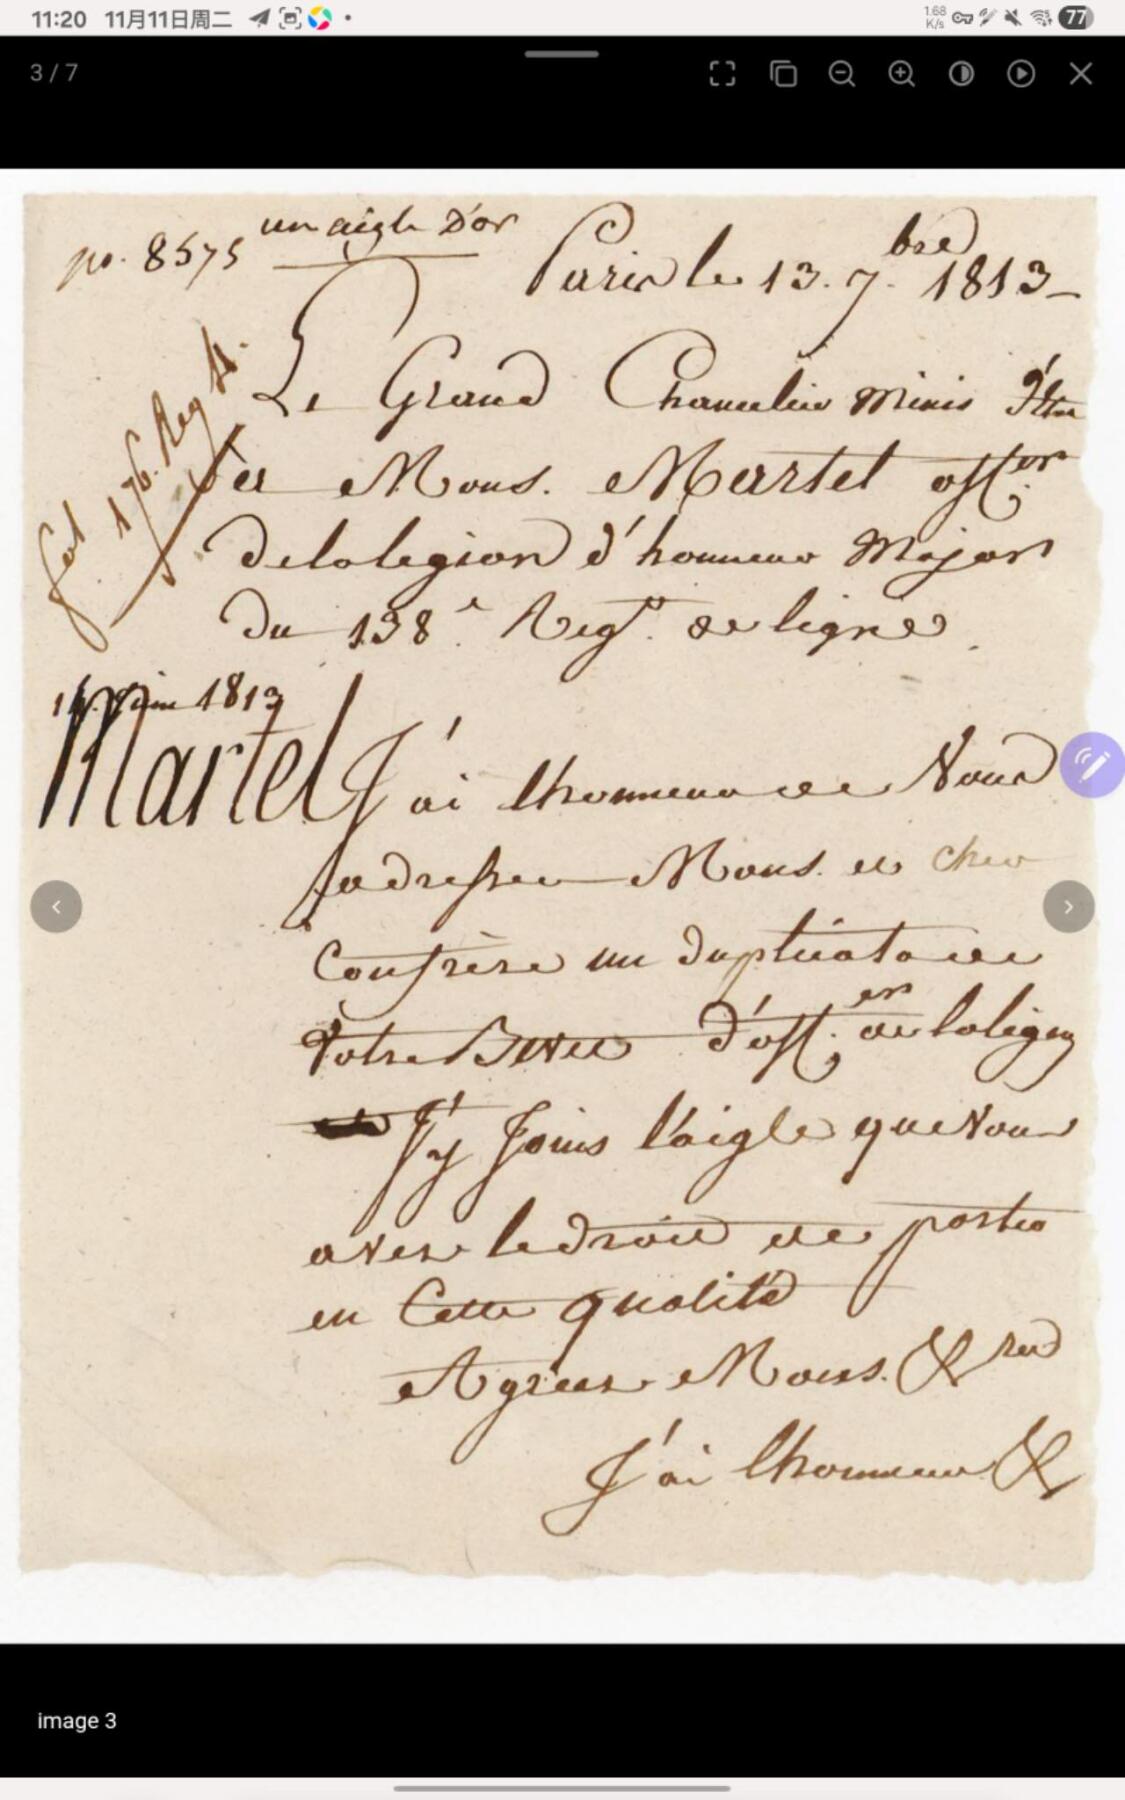 11:20 11月11日周二
1.68 K/s 77
3 / 7
no. 8575 un aigle D'or
Paris le 13. 7.bre 1813
fol 176. Reg
Le Grand Chancelier Minis d'Etat
a Mons. Martel off.er
de la legion d'honneur Major
du 138.e Reg.t de ligne.
1813
Martel
J'ai lhonneur de Vous
adresser Mons. et cher
Confrère un duplicata de
Votre Brevet d'off.er de la legion
J'y Joins l'aigle que Vous
avez le droit de porter
en Cette qualité
Agréez Mons. &
J'ai lhonneur &
image 3